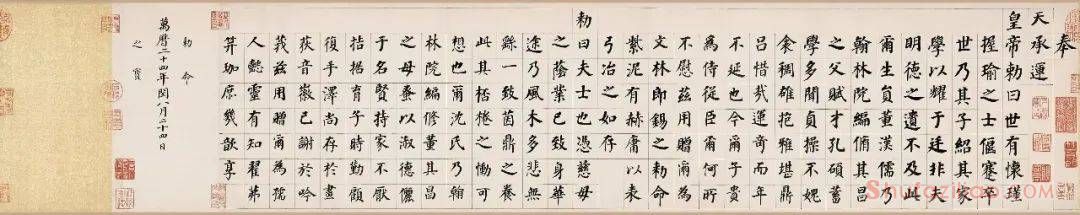 奉
天承運
皇帝勅曰世有懷瑾
握瑜之士偃蹇卒
世乃其子紹其家
學以耀于廷非夫
明德之遺不及此
爾生員董漢儒乃
翰林院編脩其昌
之父賦才孔碩蓄
學多聞貞操不媿
衾稠雄抱雅堪鼎
呂惜哉運奇而年
不延也今爾子貴
為侍從臣爾何所
不慰茲用贈爾為
文林郎錫之勅命
紫泥有赫庸以表
弓冶之如存
勅曰夫士也憑慈母
之蔭業已致身華
途乃風木多悲無
繇一致鼎之養
此其桮棬之慟可
想也爾沈氏乃翰
林院編修董其昌
之母蚤以淑德儷
于名賢持家不厭
拮据育子時勤顧
復手澤尚存於畫
荻音徽已謝於吟
莪茲用贈爾為孺
人懿靈有知翟茀
笄珈庶幾歆享
勅命
萬曆二十四年閏八月二十四日
之寶